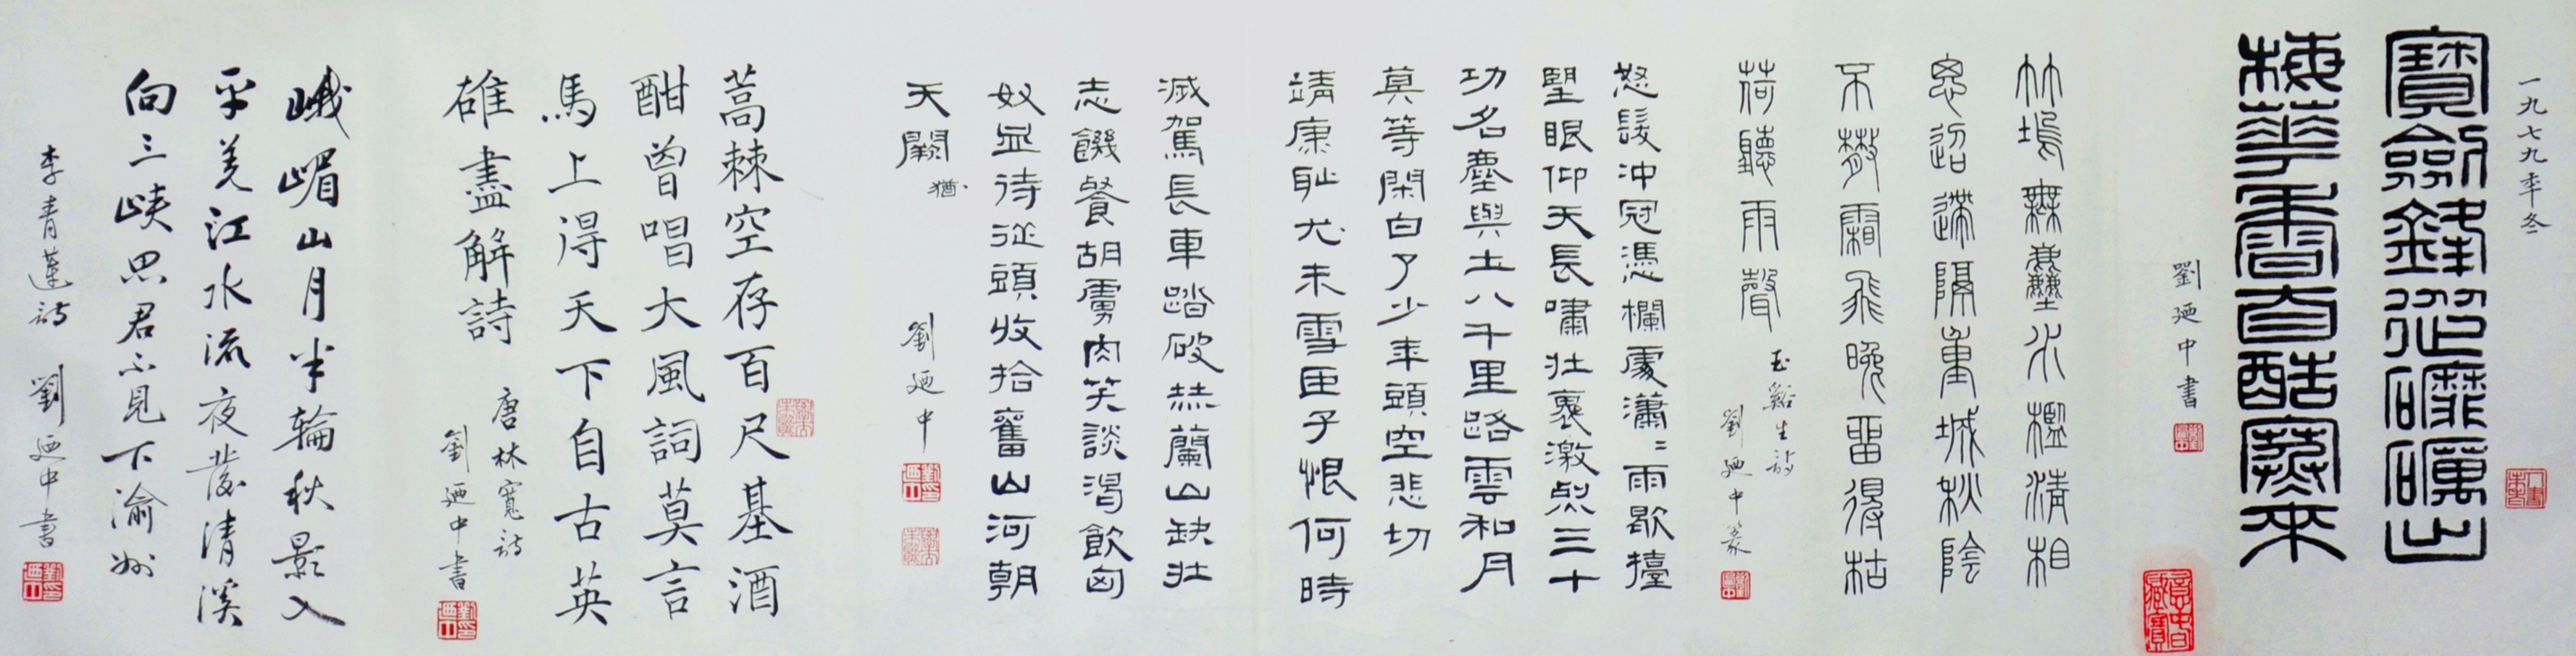 一九七九年冬
寶劍鋒從礳礪出
梅華香自酷寒來
劉廼中書
竹塢無塵水檻清相
思迢遞隔重城秋陰
不散霜飛晚留得枯
荷聽雨聲
玉谿生詩
劉廼中篆
怒髮冲冠憑欄處瀟〻雨歇擡
望眼仰天長嘯壯褱激烈三十
功名塵與土八千里路雲和月
莫等閑白了少年頭空悲切
靖康恥尤未雪臣子恨何時
滅駕長車踏破蘭山缺壯
志饑餐胡虜肉笑談渴飲匈
奴血待從頭收拾舊山河朝
天闕 猶
劉廼中
蒿棘空存百尺基酒
酣曾唱大風詞莫言
馬上得天下自古英
雄盡解詩
唐林寬詩
劉廼中書
峨嵋山月半輪秋影入
平羌江水流夜發清溪
向三峽思君不見下渝州
李青蓮詩 劉廼中書